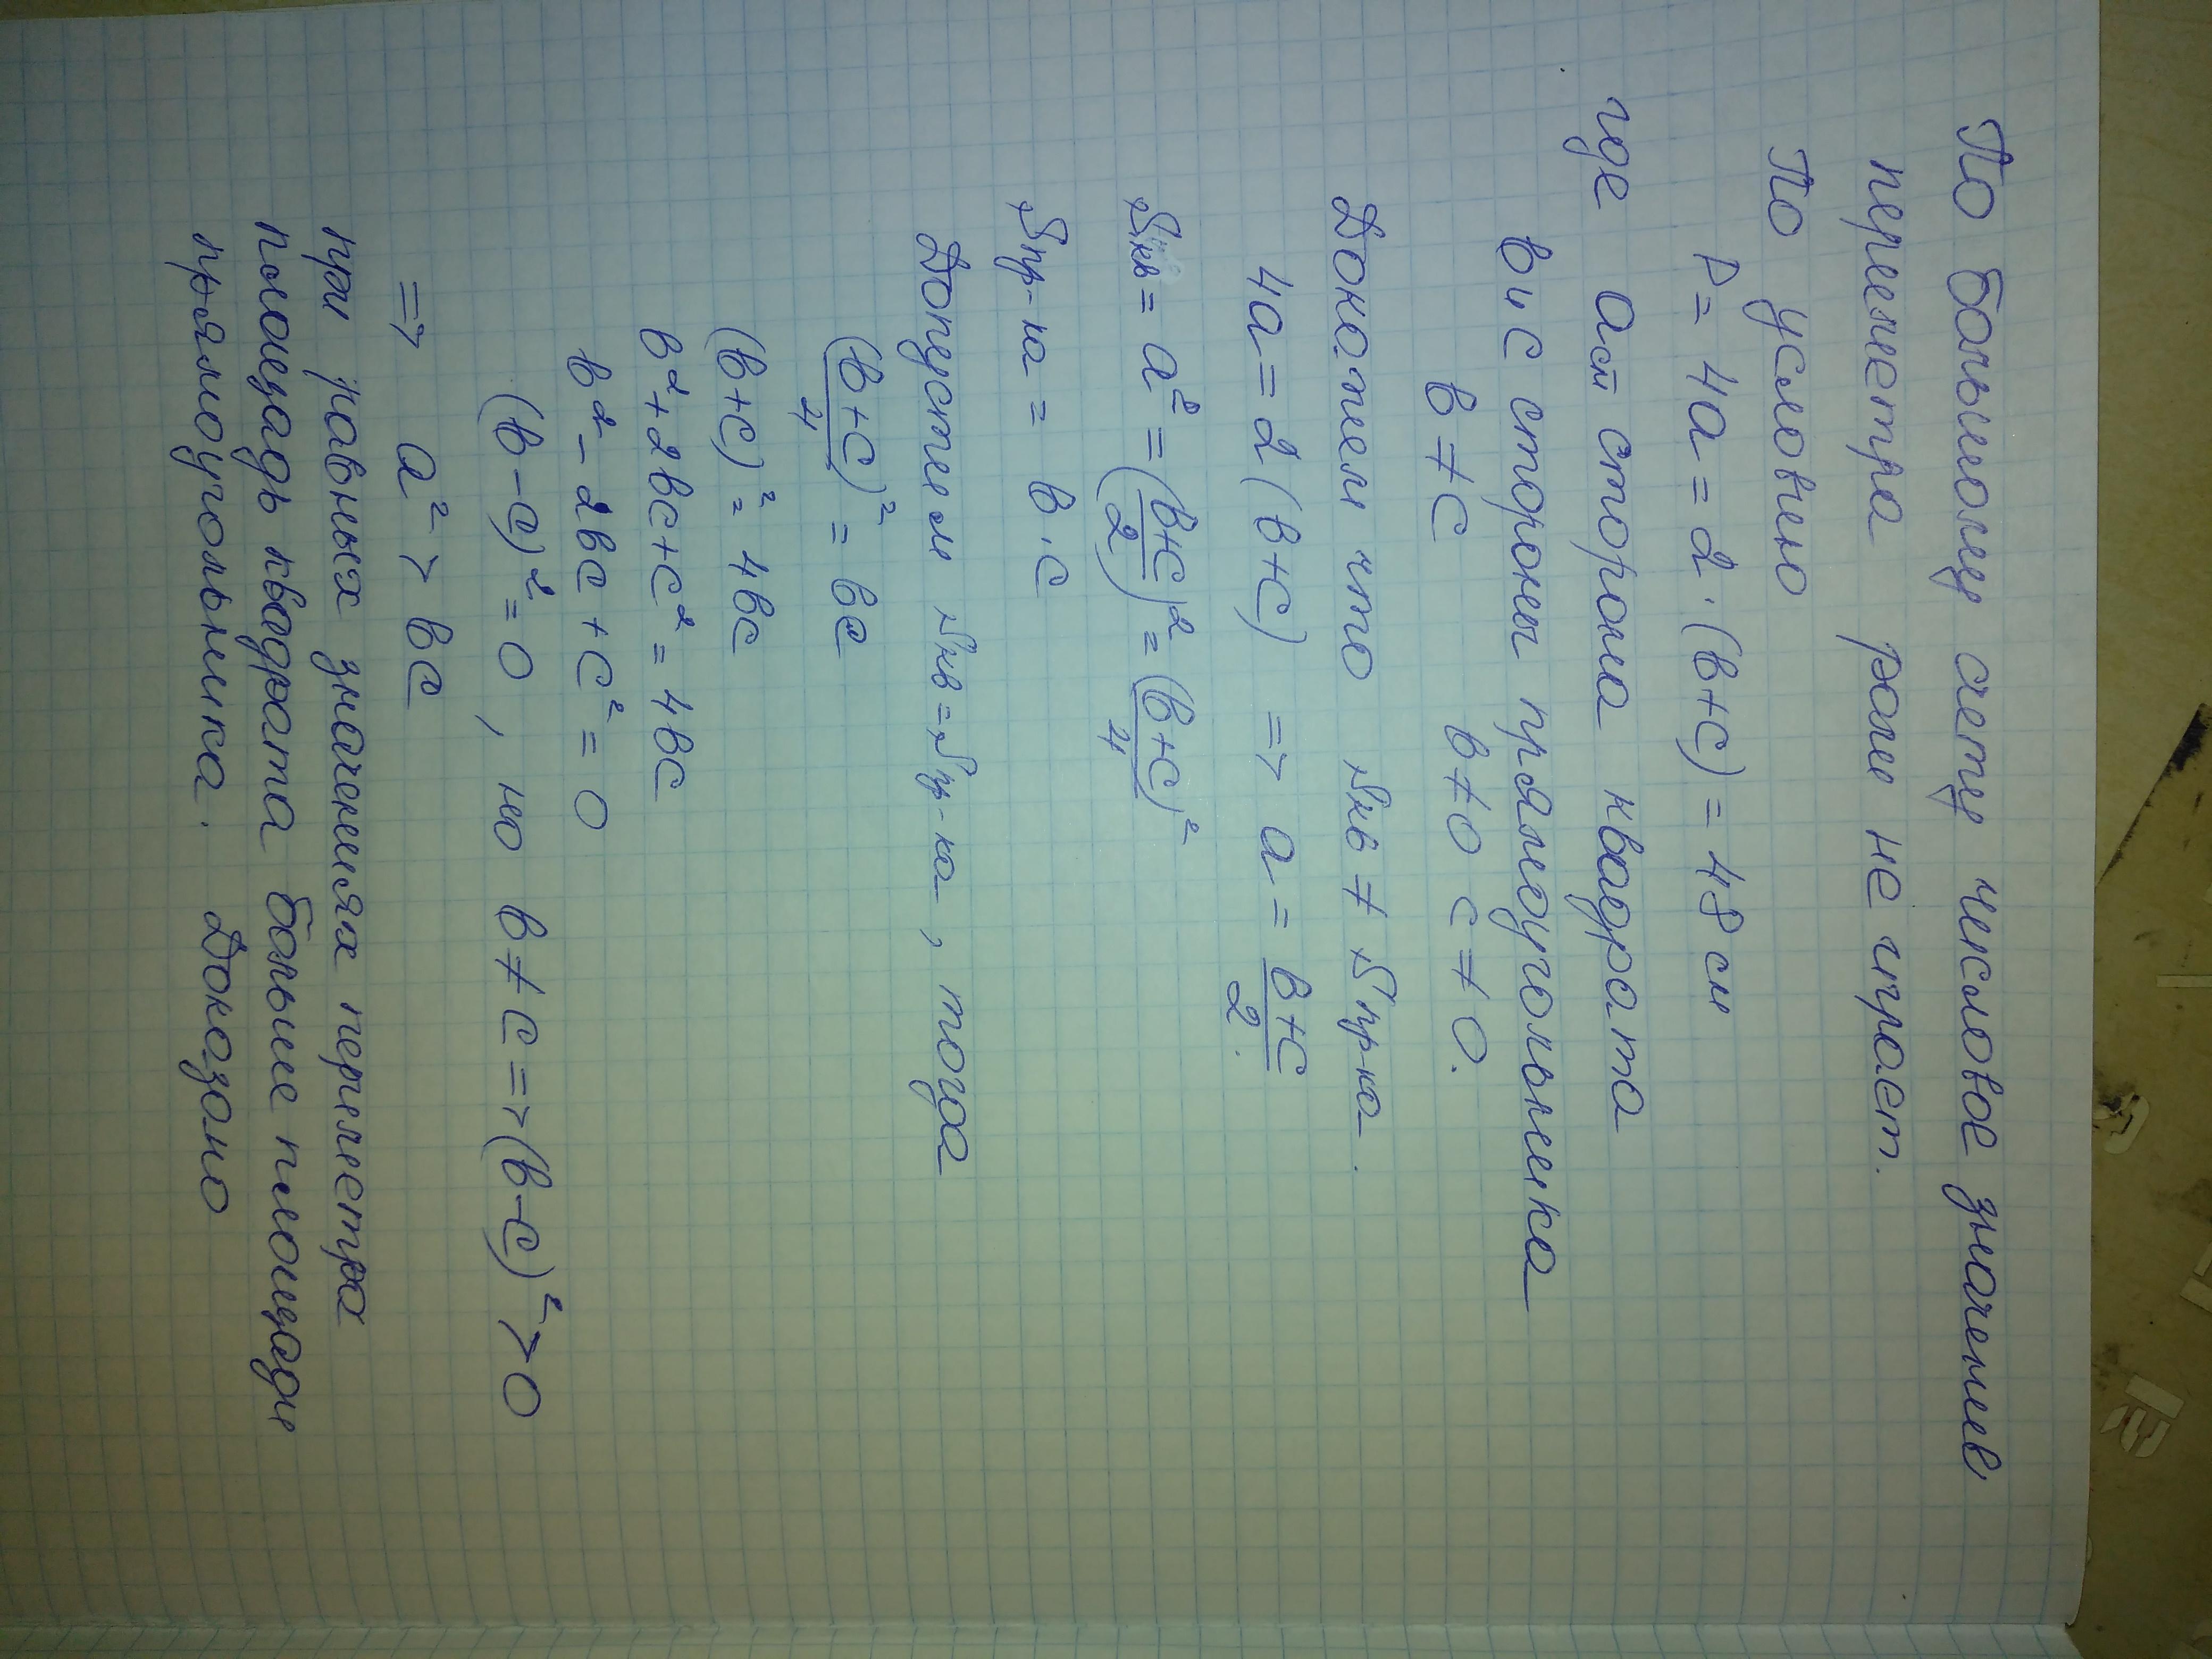 По большому счету числовое значение
периметра роли не играет.
По условию
P = 4a = 2·(в+с) = 48 см
где a сторона квадрата
в и с стороны прямоугольника
в ≠ с в ≠ 0 с ≠ 0.
Докажем что Sкв ≠ Sпр-ка.
4a = 2(в+с) => a = (в+с)/2.
Sкв = a² = ((в+с)/2)² = (в+с)²/4
Sпр-ка = в·с
Допустим Sкв = Sпр-ка, тогда
(в+с)²/4 = вс
(в+с)² = 4вс
в² + 2вс + с² = 4вс
в² - 2вс + с² = 0
(в-с)² = 0, но в ≠ с => (в-с)² > 0
=> a² > вс
при равных значениях периметра
площадь квадрата больше площади
прямоугольника. Доказано